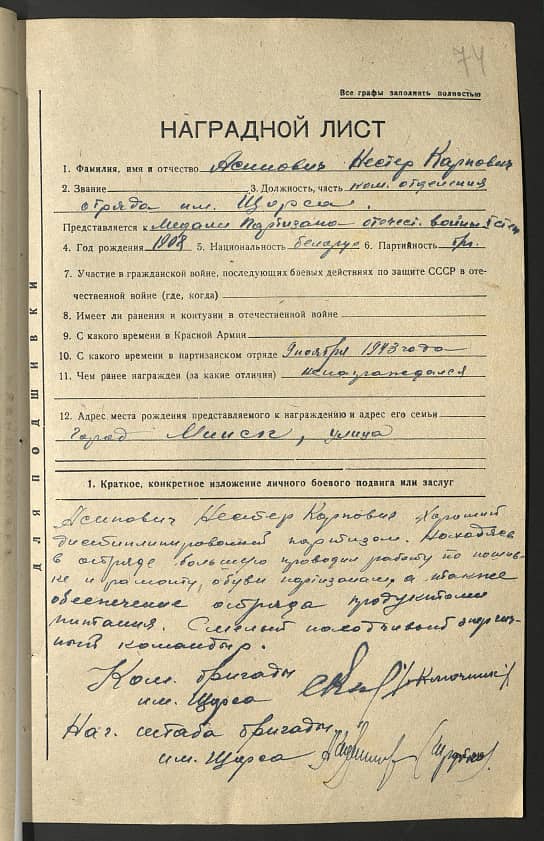 74
Все графы заполнять полностью
НАГРАДНОЙ ЛИСТ
1. Фамилия, имя и отчество Асипович Нестер Карпович
2. Звание 3. Должность, часть ком. отделения
отряда им. Щорса.
Представляется к Медали Партизана отечест. войны
4. Год рождения 1908 5. Национальность беларус 6. Партийность
7. Участие в гражданской войне, последующих боевых действиях по защите СССР в оте-
чественной войне (где, когда)
8. Имеет ли ранения и контузии в отечественной войне
9. С какого времени в Красной Армии
10. С какого времени в партизанском отряде 9 ноября 1943 года
11. Чем ранее награжден (за какие отличия) не награждался
12. Адрес места рождения представляемого к награждению и адрес его семьи
Город Минск, улица
1. Краткое, конкретное изложение личного боевого подвига или заслуг
Асипович Нестер Карпович хороший
дисциплинированный партизан. Находясь
в отряде большую проводил работу по пошив-
ке и ремонту, обуви партизанам, а также
обеспечение отряда продуктами
питания. Смелый находчивый энергич-
ный командир.
Ком. бригады
им. Щорса
Нач. штаба бригады
им. Щорса
ДЛЯ ПОДШИВКИ